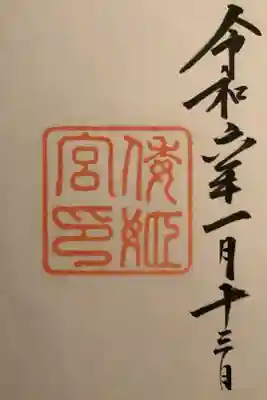 令和六年一月十三日
倭姫
宮印